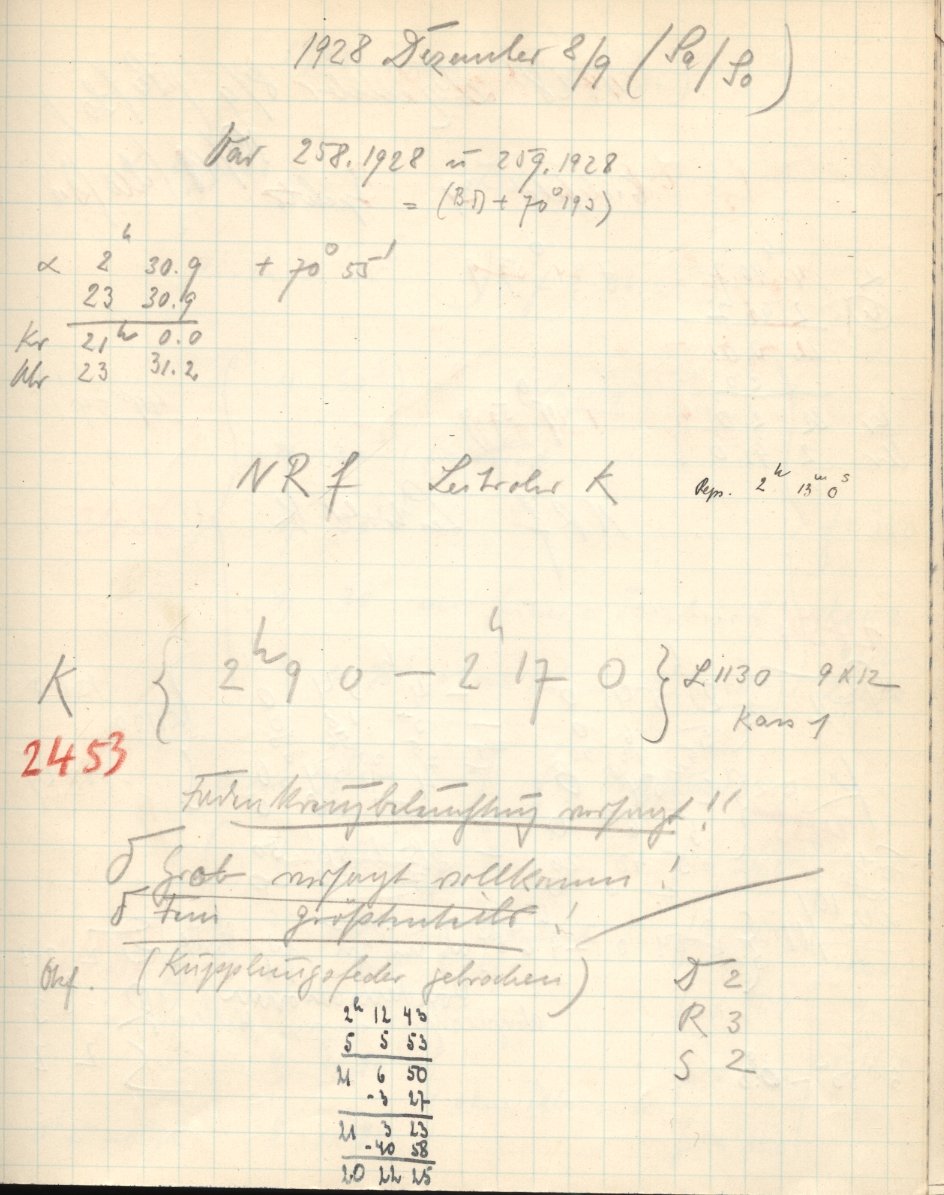 1928 Dezember 8/9 (Sa/So)
Var 258.1928 u 259.1928
= (BD + 70° 192)
α 2h 30.9 + 70° 55'
23 30.9
Kr 21h 0.0
Uhr 23 31.2
NR f Leitrohr K Reps. 2h 13m 0s
K { 2h 9 0 – 2h 17 0 } L 1130 9x12
Kass 1
2453
Fadenkreuzbeleuchtung versagt!!
δ Grob versagt vollkommen!
δ Fein größtenteils!
(Kupplungsfeder gebrochen) D 2
R 3
S 2
2h 12 43
5 5 53
21 6 50
-3 27
21 3 23
-40 58
20 22 25